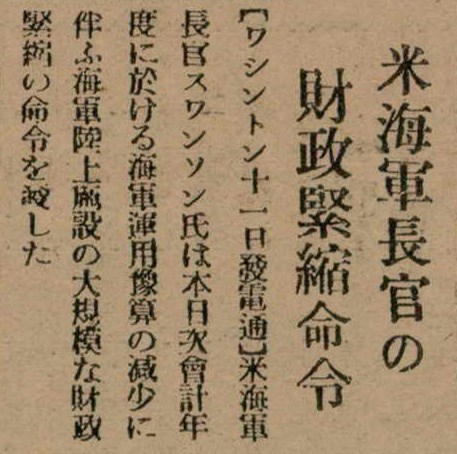 米海軍長官の
財政緊縮命令
【ワシントン十一日發電通】米海軍
長官スワンソン氏は本日次會計年
度に於ける海軍運用豫算の減少に
伴ふ海軍陸上施設の大規模な財政
緊縮の命令を發した